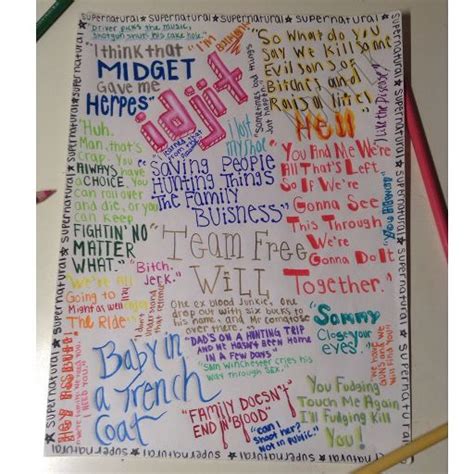 SUPERNATURAL ★ SUPERNATURAL ★ SUPERNATURAL ★ SUPERNATURAL
"Driver picks the music,
shotgun shuts his cake hole."
"I think that
MIDGET
Gave me
Herpes"
"I'm Batman!"
idjit
"So What do you
Say We Kill Some
Evil Sons of
Bitches and
Raise a little
Hell
"Sometimes bad things
Just happen."
(Like the Disease?)
"Huh.
Man, that's
Crap. You
ALWAYS have
a CHOICE. You
Can roll over
and die, or you
Can Keep
FIGHTIN' NO
MATTER
WHAT."
I lost
my shoe
"Saving People
Hunting Things
The Family
Buisness"
"You Find Me We're
All That's Left
So If We're
Gonna See
This Through
We're
Gonna Do It
Together."
Team Free
Will
"Bitch."
Jerk."
"We're all
Going to
Might as well enjoy
The Ride"
One ex blood junkie, one
drop out with six bucks to
his name, and Mr Comatose
over there."
"DAD'S ON A HUNTING TRIP
AND HE HASN'T BEEN HOME
IN A FEW DAYS"
"Sam Winchester cries his
way through sex."
"Sammy
Close your
eyes."
Baby in
a Trench
Coat
"FAMILY DOESN'T
END IN BLOOD"
"can I
Shoot her?"
"Not in Public."
You Fudging
Touch Me Again
I'll Fudging Kill
You!
HEY ASSBUTT
I need you."
SUPERNATURAL ★ SUPERNATURAL ★ SUPERNATURAL ★ SUPERNATURAL